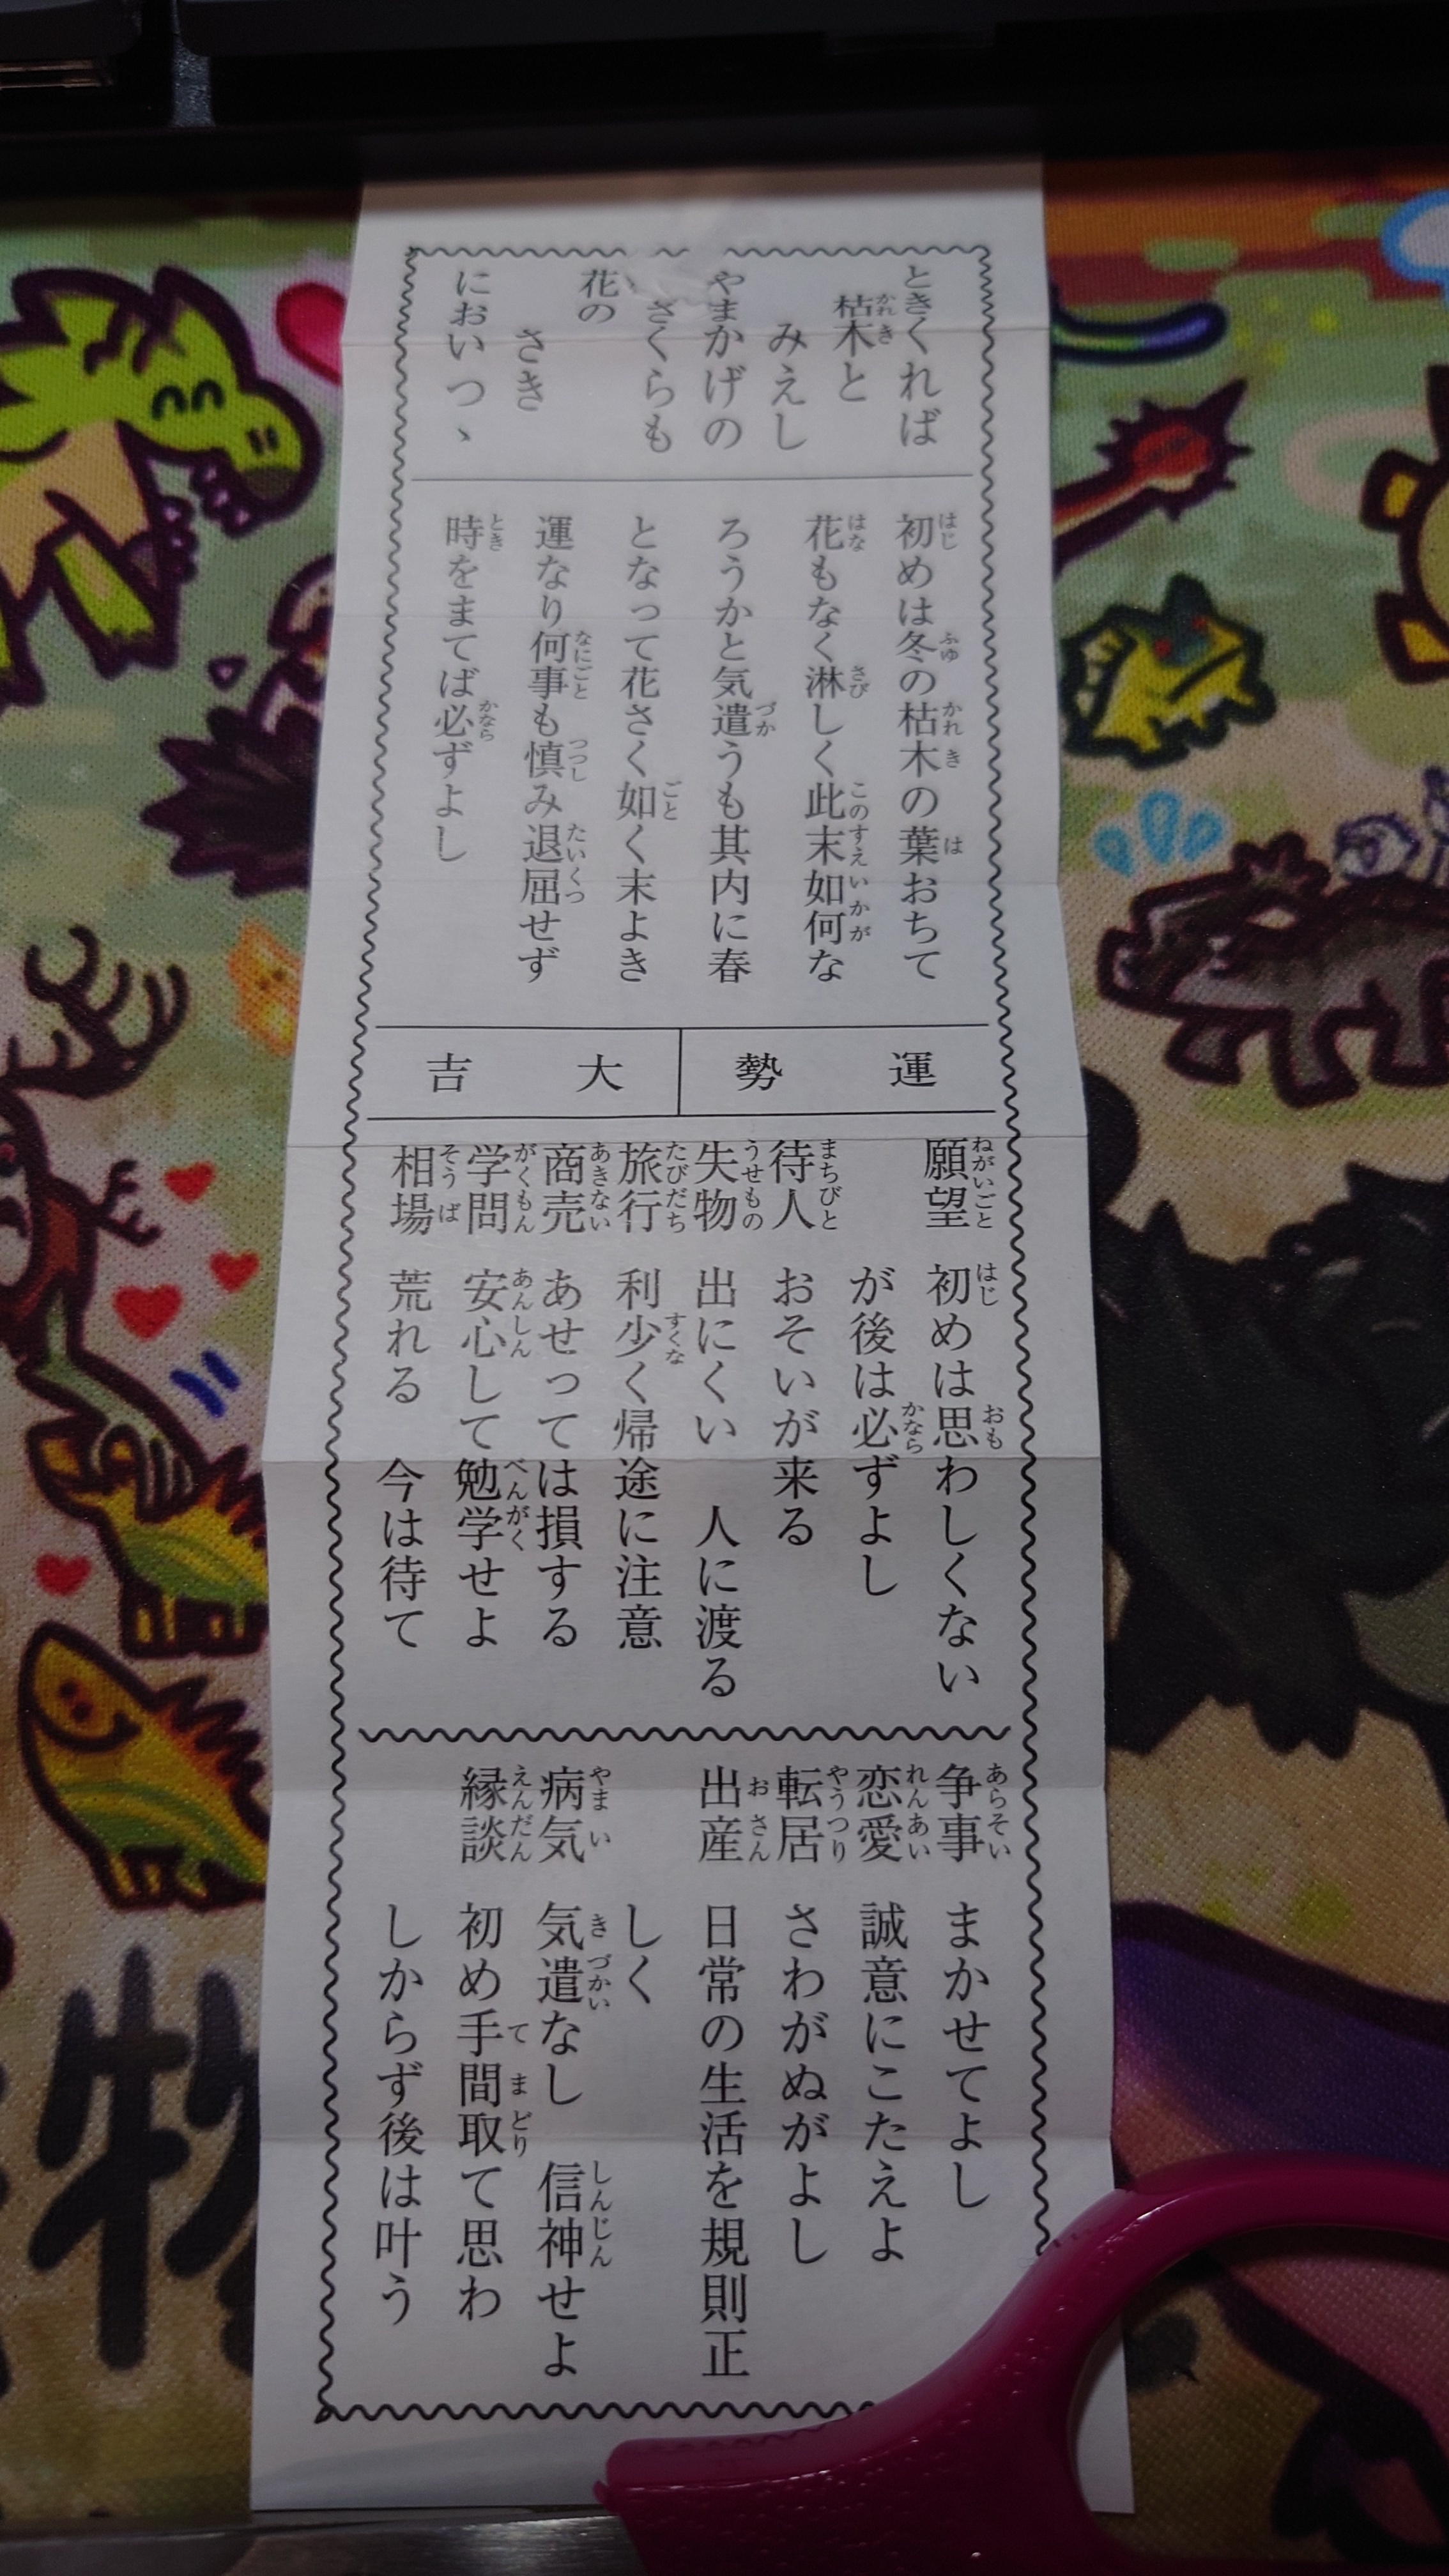 ときくれば
枯木と
みえし
やまかげの
さくらも
花の
さき
におい つゝ
初めは冬の枯木の葉おちて
花もなく淋しく此末如何な
ろうかと気遣うも其内に春
となって花さく如く末よき
運なり何事も慎み退屈せず
時をまてば必ずよし
運勢 大吉
願望 初めは思わしくない
が後は必ずよし
待人 おそいが来る
失物 出にくい 人に渡る
旅行 利少く帰途に注意
商売 あせっては損する
学問 安心して勉学せよ
相場 荒れる 今は待て
争事 まかせてよし
恋愛 誠意にこたえよ
転居 さわがぬがよし
出産 日常の生活を規則正
しく
病気 気遣なし 信神せよ
縁談 初め手間取て思わ
しからず後は叶う
物